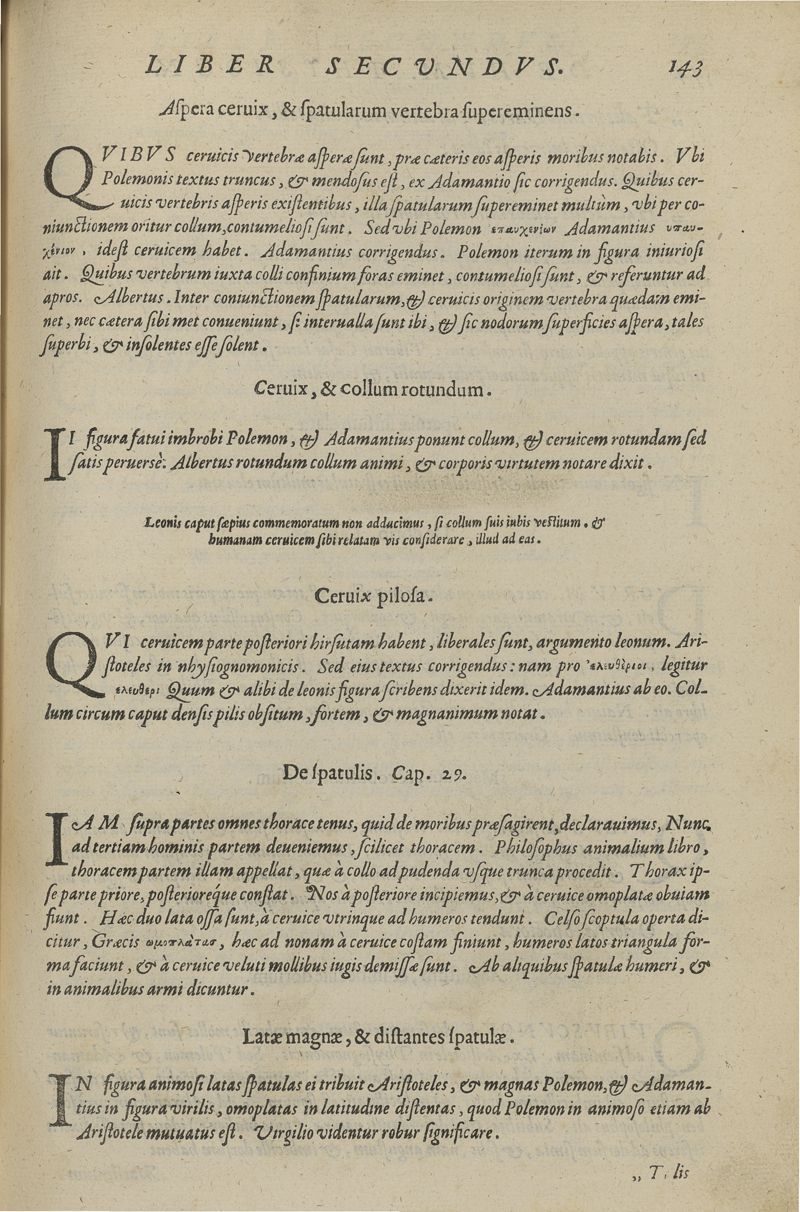 LIBER SECVNDVS. 143
Aſpera ceruix, & ſpatularum vertebra ſupereminens.
QVIBVS ceruicis vertebræ aſperæ ſunt, præ cæteris eos aſperis moribus notabis. Vbi
Polemonis textus truncus, & mendoſus eſt, ex Adamantio ſic corrigendus. Quibus cer-
uicis vertebris aſperis exiſtentibus, illa ſpatularum ſupereminet multùm, vbi per co-
niunctionem oritur collum, contumelioſi ſunt. Sed vbi Polemon επαυχενίων Adamantius υπαυ-
χένιον, ideſt ceruicem habet. Adamantius corrigendus. Polemon iterum in figura iniurioſi
ait. Quibus vertebrum iuxta colli confinium foras eminet, contumelioſi ſunt, & referuntur ad
apros. Albertus. Inter coniunctionem ſpatularum, & ceruicis originem vertebra quædam emi-
net, nec cætera ſibi met conueniunt, ſi interualla ſunt ibi, & ſic nodorum ſuperficies aſpera, tales
ſuperbi, & inſolentes eſſe ſolent.
Ceruix, & collum rotundum.
II figura fatui imbrobi Polemon, & Adamantius ponunt collum, & ceruicem rotundam ſed
ſatis peruersè. Albertus rotundum collum animi, & corporis virtutem notare dixit.
Leonis caput ſæpius commemoratum non adducimus, ſi collum ſuis iubis veſtitum. &
humanam ceruicem ſibi relatam vis conſiderare, illud ad eas.
Ceruix piloſa.
QVI ceruicem parte poſteriori hirſutam habent, liberales ſunt, argumento leonum. Ari-
ſtoteles in nhyſiognomonicis. Sed eius textus corrigendus: nam pro ἐλευθέριοι, legitur
ελευθερι Quum & alibi de leonis figura ſcribens dixerit idem. Adamantius ab eo. Col-
lum circum caput denſis pilis obſitum, fortem, & magnanimum notat.
De ſpatulis. Cap. 29.
IAM ſupra partes omnes thorace tenus, quid de moribus præſagirent, declarauimus, Nunc
ad tertiam hominis partem deueniemus, ſcilicet thoracem. Philoſophus animalium libro,
thoracem partem illam appellat, quæ à collo ad pudenda vſque trunca procedit. Thorax ip-
ſe parte priore, poſterioreq́ue conſtat. Nos à poſteriore incipiemus, & à ceruice omoplatæ obuiam
fiunt. Hæc duo lata oſſa ſunt, à ceruice vtrinque ad humeros tendunt. Celſo ſcoptula operta di-
citur, Græcis ωμοπλάτας, hæc ad nonam à ceruice coſtam finiunt, humeros latos triangula for-
ma faciunt, & à ceruice veluti mollibus iugis demiſſæ ſunt. Ab aliquibus ſpatulæ humeri, &
in animalibus armi dicuntur.
Latæ magnæ, & diſtantes ſpatulæ.
IN figura animoſi latas ſpatulas ei tribuit Ariſtoteles, & magnas Polemon, & Adaman-
tius in figura virilis, omoplatas in latitudine diſtentas, quod Polemon in animoſo etiam ab
Ariſtotele mutuatus eſt. Virgilio videntur robur ſignificare.
,, T, lis